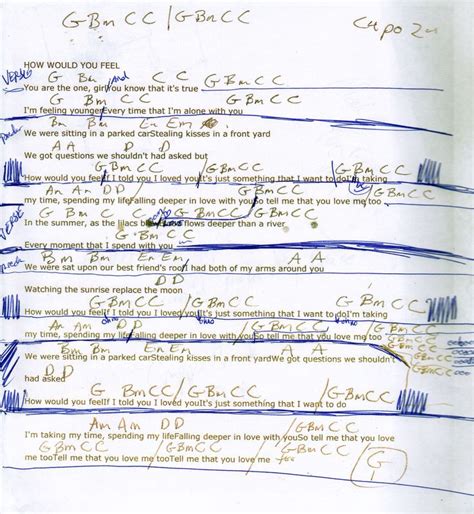 G Bm C C / G Bm C C
Capo 2
HOW WOULD YOU FEEL
VERSE G Bm C C G Bm C C
You are the one, girl you know that it's true
G Bm C C G Bm C C
I'm feeling younger Every time that I'm alone with you
Bm Bm Em Em
We were sitting in a parked carStealing kisses in a front yard
A A D D
We got questions we shouldn't had asked but
G Bm C C / G Bm C C / G Bm C C
How would you feelIf I told you I loved youIt's just something that I want to doI'm taking
Am Am D D / G Bm C C / G Bm C C
my time, spending my lifeFalling deeper in love with youSo tell me that you love me too
VERSE G Bm C C / G Bm C C / G Bm C C
In the summer, as the lilacs bloom flows deeper than a river
G Bm C C
Every moment that I spend with you
Bm Bm Em Em A A
We were sat upon our best friend's roofI had both of my arms around you
D D
Watching the sunrise replace the moon
G Bm C C / G Bm C C / G Bm C C
How would you feelIf I told you I loved youIt's just something that I want to doI'm taking
Am Am D D / G Bm C C / G Bm C C
my time, spending my lifeFalling deeper in love with youSo tell me that you love me too
G Bm C C
G Bm C C
G Bm C C
Bm Bm Em Em A A
We were sitting in a parked carStealing kisses in a front yardWe got questions we shouldn't
D D
had asked
G Bm C C / G Bm C C / G Bm C C
How would you feelIf I told you I loved youIt's just something that I want to do
Am Am D D / G Bm C C
I'm taking my time, spending my lifeFalling deeper in love with youSo tell me that you love
G Bm C C / G Bm C C / G
me tooTell me that you love me tooTell me that you love me too